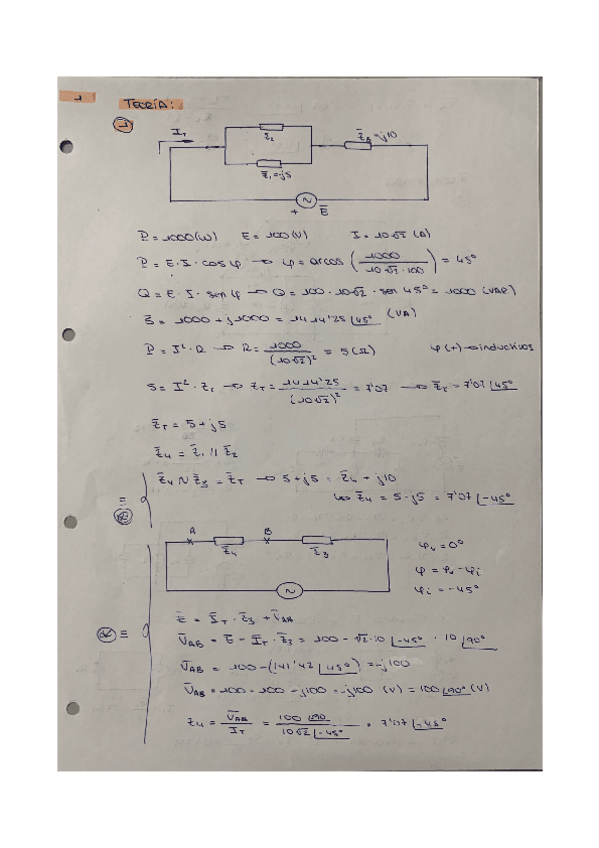 1
TEORÍA:
1
I_T
Z₂
Z̄₃=j10
Z̄₁=-j5
+ Ē
P = 1000 (W) E = 100 (V) I = 10√2 (A)
P = E · I · cos φ → φ = arcos (1000 / 10√2 · 100) = 45°
Q = E · I · sen φ → Q = 100 · 10√2 · sen 45° = 1000 (VAR)
S̄ = 1000 + j1000 = 1414'25 ∠45° (VA)
P = I² · R → R = 1000 / (10√2)² = 5 (Ω) φ(+) → inductivos
S = I² · Z_T → Z_T = 1414'25 / (10√2)² = 7'07 → Z̄_T = 7'07 ∠45°
Z̄_T = 5 + j5
Z̄₄ = Z̄₁ // Z̄₂
Z̄₄ N Z̄₃ = Z̄_T → 5 + j5 = Z̄₄ + j10
↳ Z̄₄ = 5 - j5 = 7'07 ∠-45°
≡
A B
Z̄₄ Z̄₃
φᵥ = 0°
φ = φᵥ - φᵢ
φᵢ = -45°
Ē = Ī_T · Z̄₃ + Ū_AB
≡ Ū_AB = Ē - Ī_T · Z̄₃ = 100 - √2·10 ∠-45° · 10 ∠90°
Ū_AB = 100 - (141'42 ∠45°) = -j100
Ū_AB = 100 - 100 - j100 = -j100 (V) = 100 ∠90° (V)
Z₄ = Ū_AB / I_T = 100 ∠90 / 10√2 ∠-45° = 7'07 ∠-45°